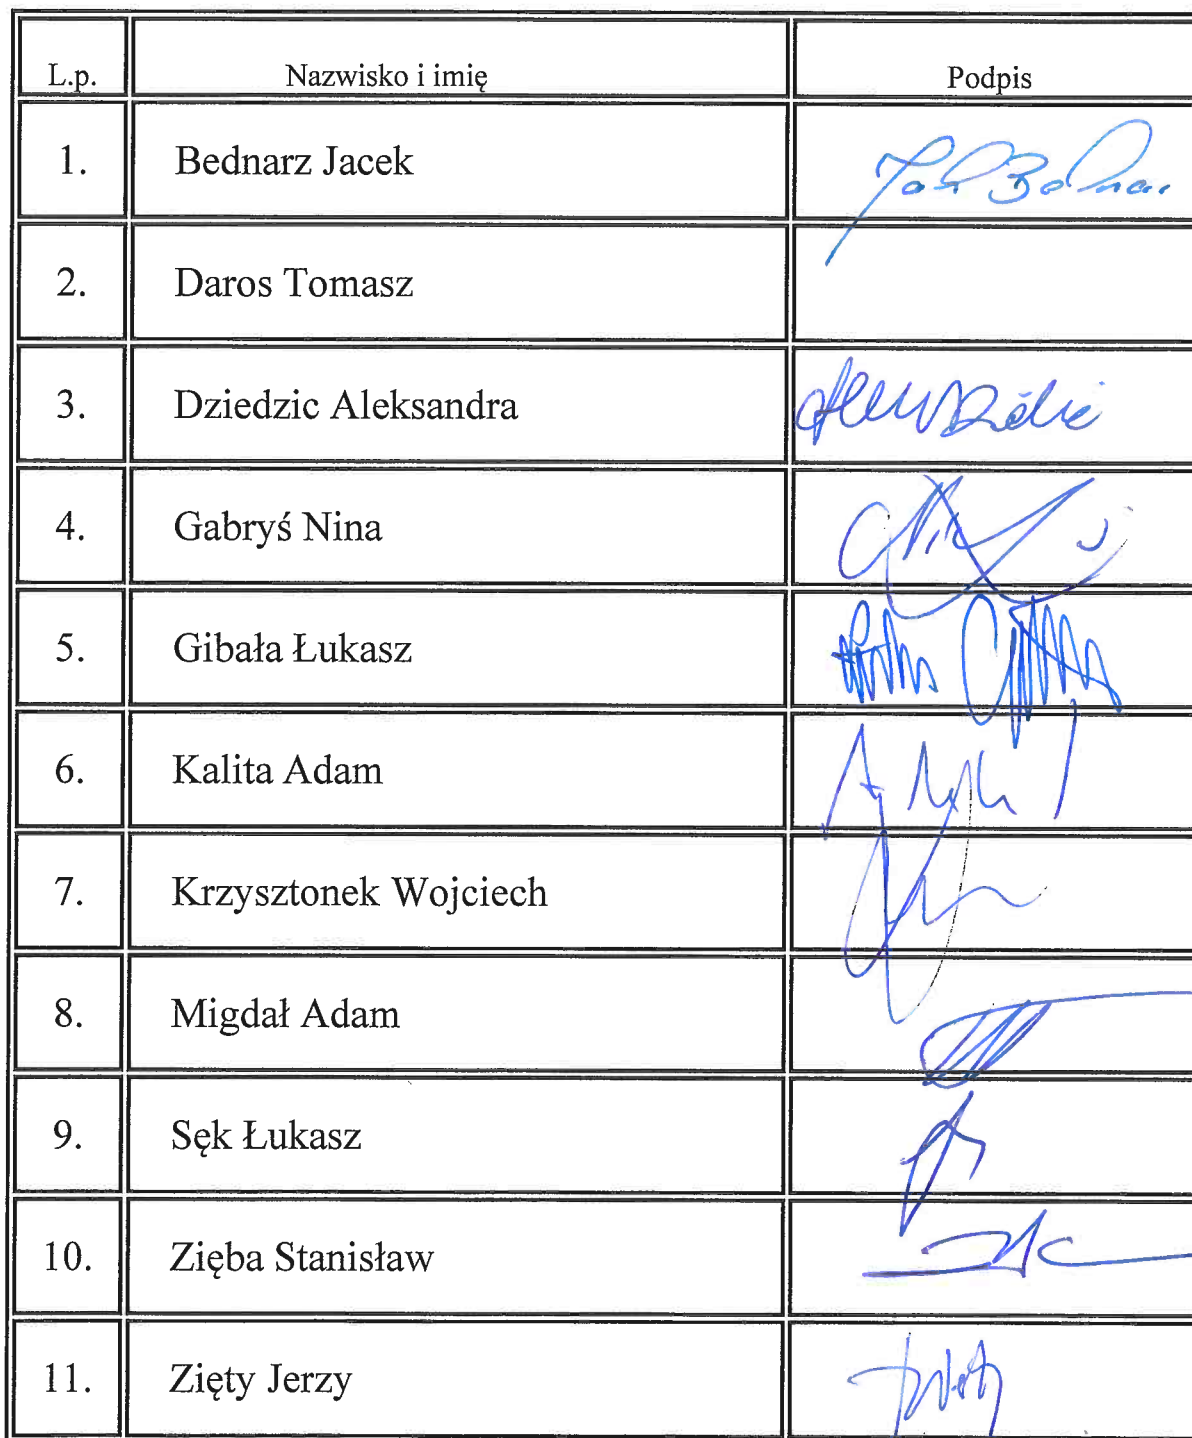 L.p. Nazwisko i imię Podpis
1. Bednarz Jacek
2. Daros Tomasz
3. Dziedzic Aleksandra
4. Gabryś Nina
5. Gibała Łukasz
6. Kalita Adam
7. Krzysztonek Wojciech
8. Migdał Adam
9. Sęk Łukasz
10. Zięba Stanisław
11. Zięty Jerzy